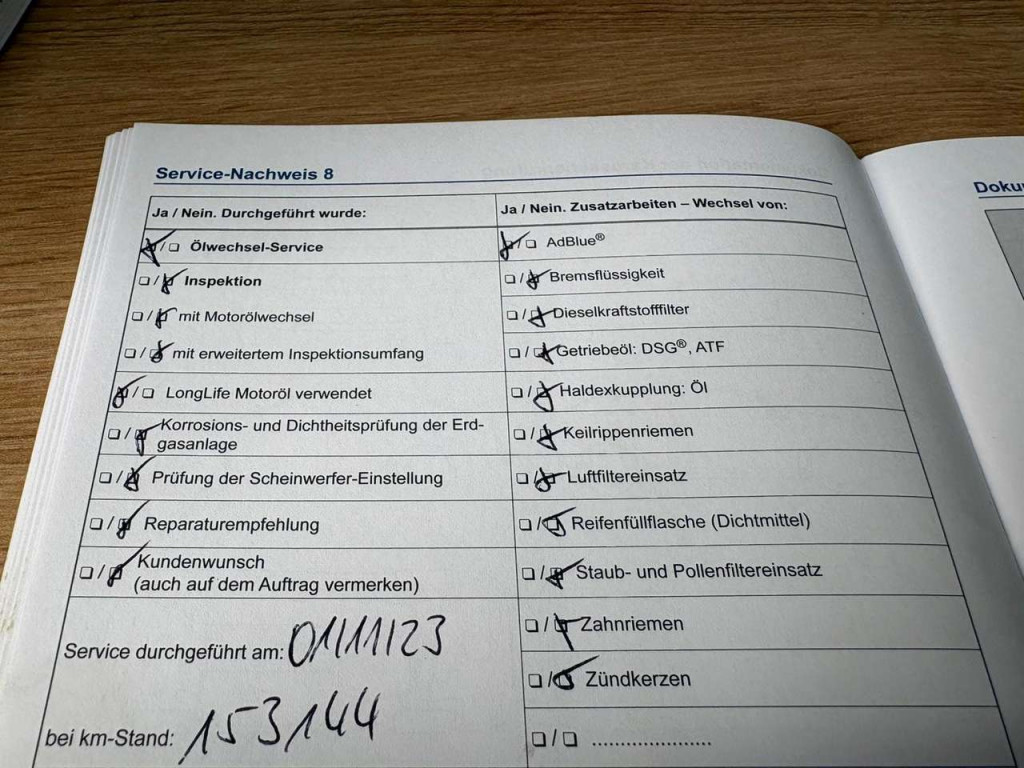 Service-Nachweis 8
Ja / Nein. Durchgeführt wurde:
☒/☐ Ölwechsel-Service
☐/☒ Inspektion
☐/☒ mit Motorölwechsel
☐/☒ mit erweitertem Inspektionsumfang
☒/☐ LongLife Motoröl verwendet
☐/☒ Korrosions- und Dichtheitsprüfung der Erd-
gasanlage
☐/☒ Prüfung der Scheinwerfer-Einstellung
☐/☒ Reparaturempfehlung
☐/☒ Kundenwunsch
(auch auf dem Auftrag vermerken)
Service durchgeführt am: 01/11/23
bei km-Stand: 153144
Ja / Nein. Zusatzarbeiten – Wechsel von:
☒/☐ AdBlue®
☐/☒ Bremsflüssigkeit
☐/☒ Dieselkraftstofffilter
☐/☒ Getriebeöl: DSG®, ATF
☐/☒ Haldexkupplung: Öl
☐/☒ Keilrippenriemen
☐/☒ Luftfiltereinsatz
☐/☒ Reifenfüllflasche (Dichtmittel)
☐/☒ Staub- und Pollenfiltereinsatz
☐/☒ Zahnriemen
☐/☒ Zündkerzen
☐/☐ .....................